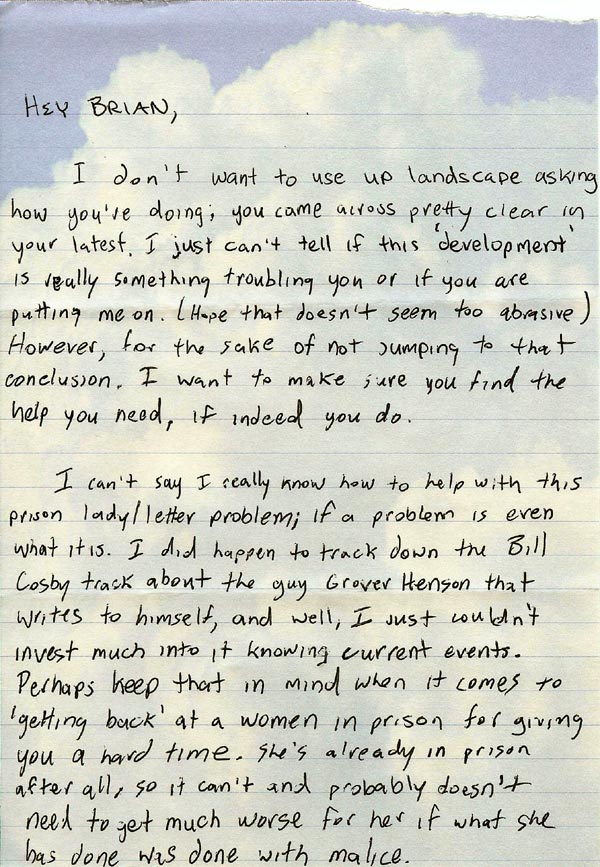 HEY BRIAN,
I don't want to use up landscape asking
how you're doing; you came across pretty clear in
your latest. I just can't tell if this 'development'
is really something troubling you or if you are
putting me on. (Hope that doesn't seem too abrasive)
However, for the sake of not jumping to that
conclusion. I want to make sure you find the
help you need, if indeed you do.
I can't say I really know how to help with this
prison lady/letter problem; if a problem is even
what it is. I did happen to track down the Bill
Cosby track about the guy Grover Henson that
writes to himself, and well, I just couldn't
invest much into it knowing current events.
Perhaps keep that in mind when it comes to
'getting back' at a women in prison for giving
you a hard time. She's already in prison
after all, so it can't and probably doesn't
need to get much worse for her if what she
has done was done with malice.